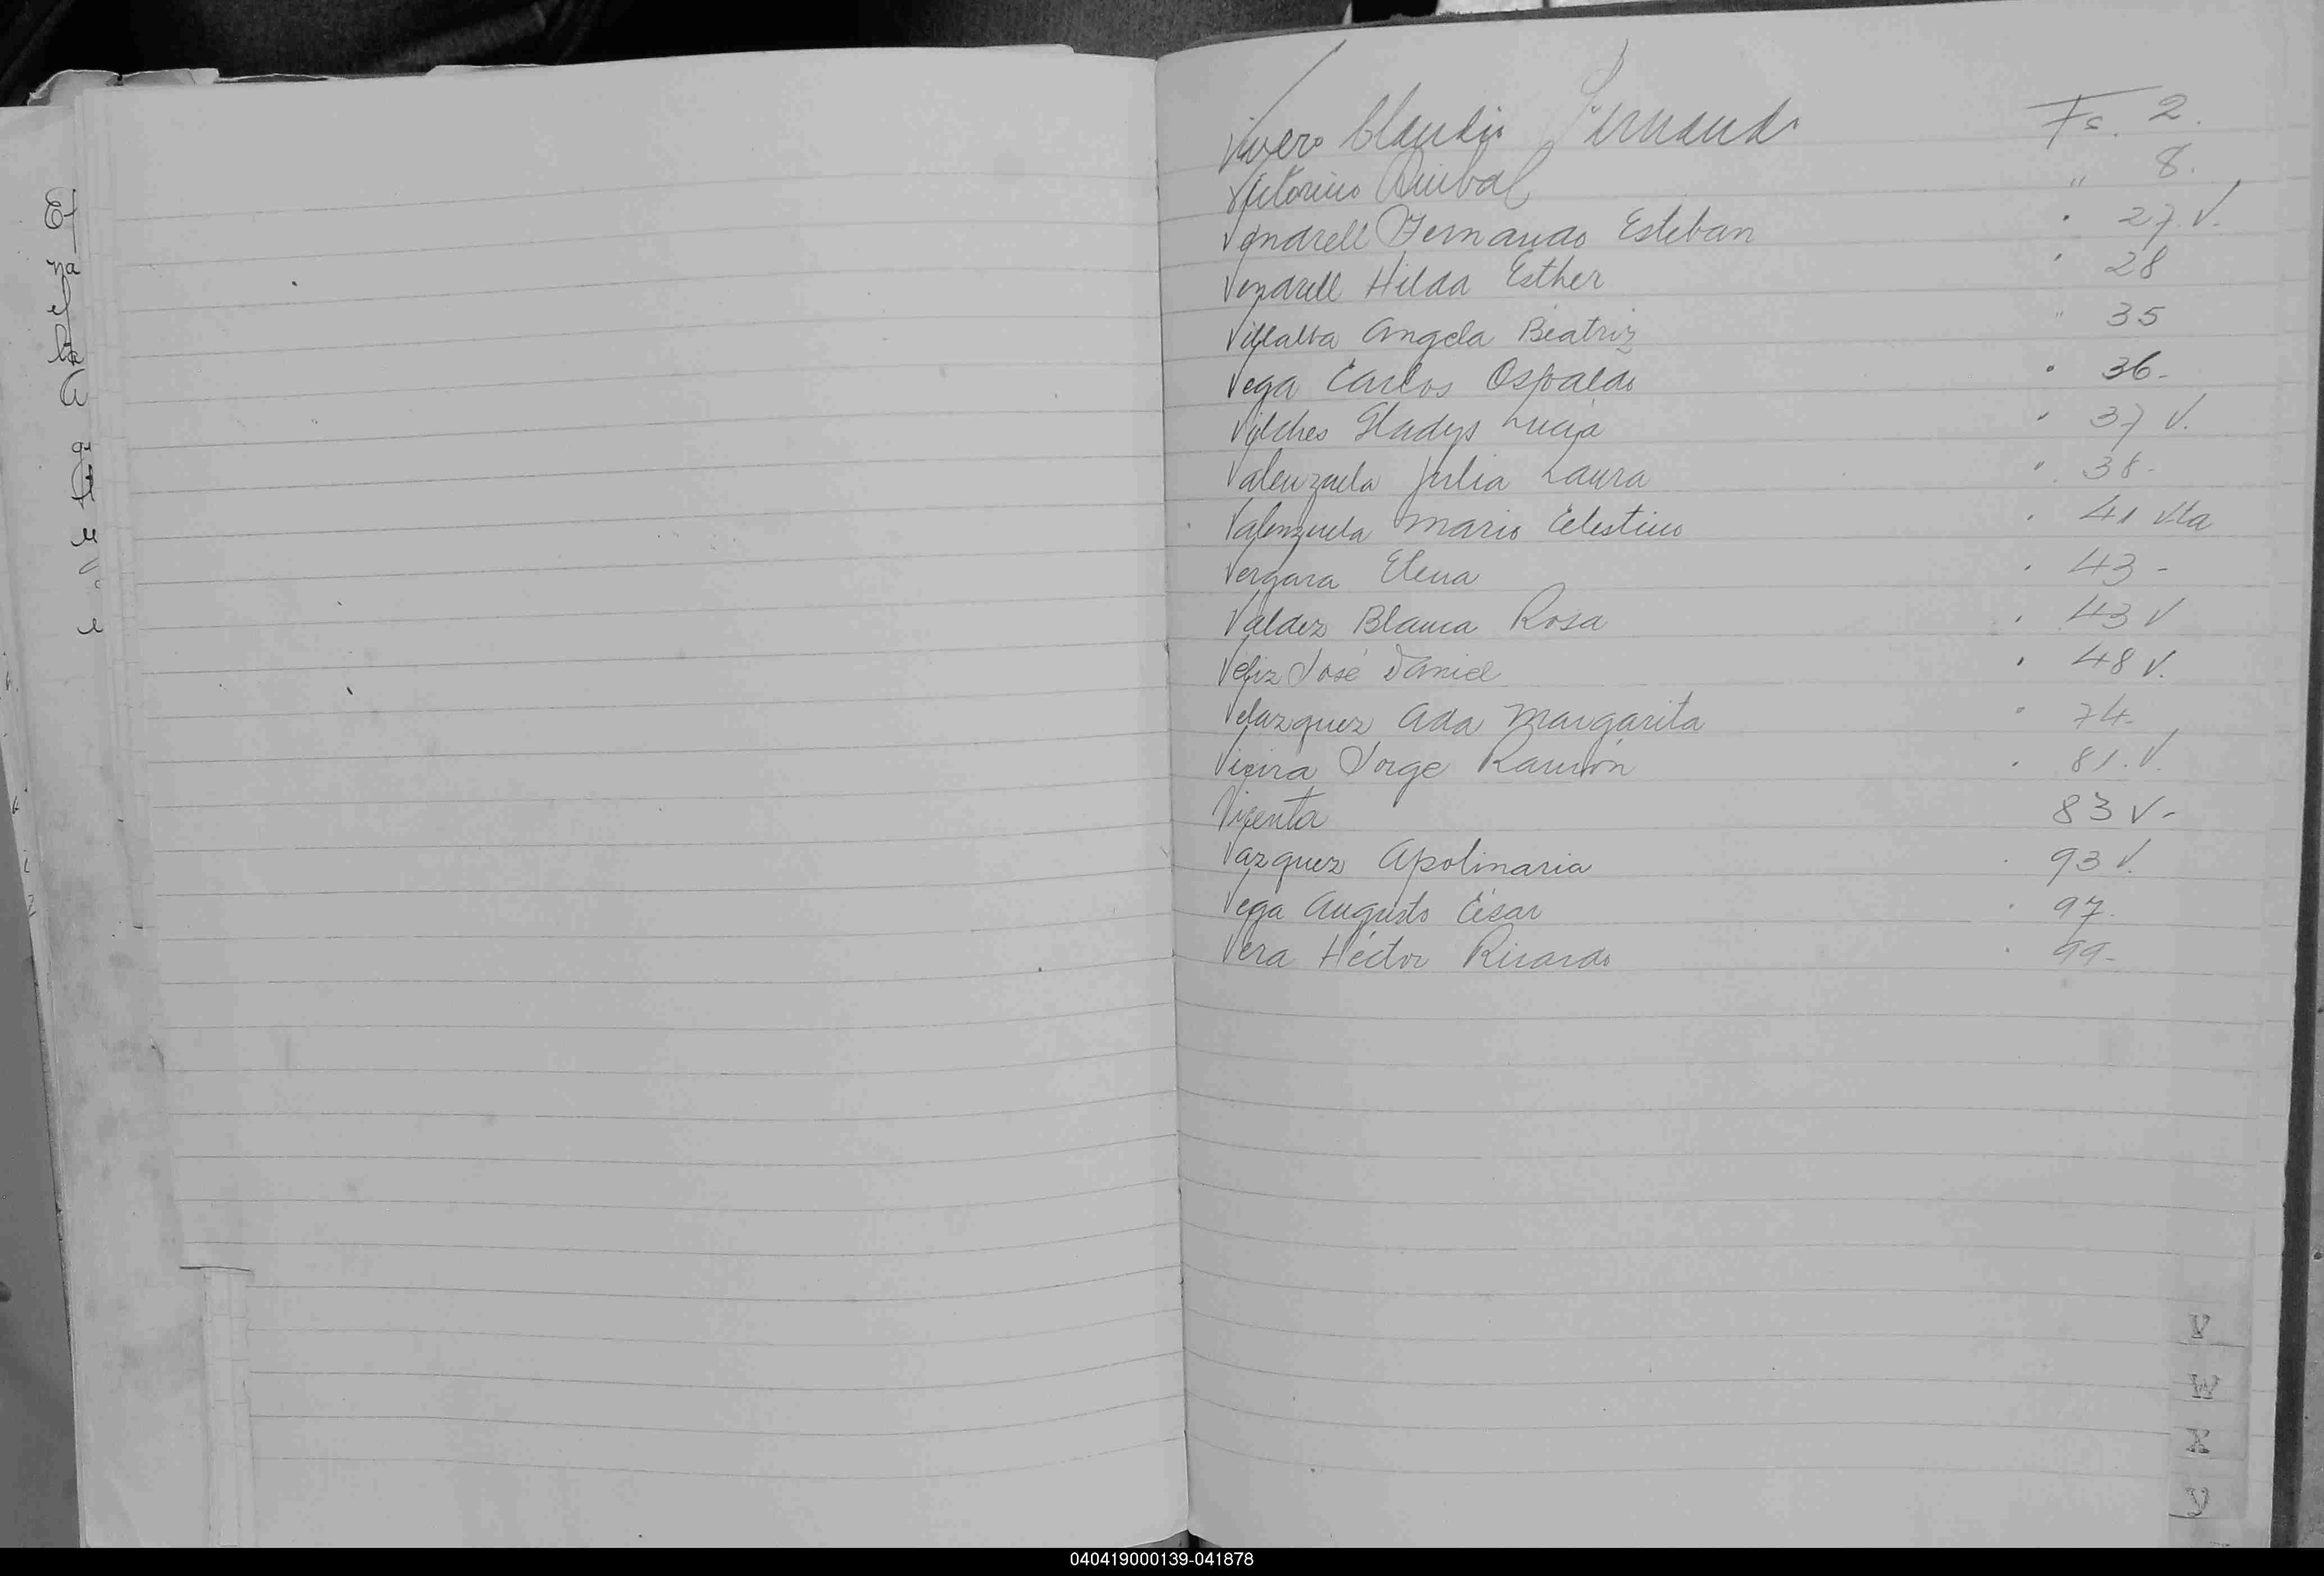 Vivero Claudio Fernando Fs. 2.
Victorino Anibal " 8.
Vendrell Fernando Esteban " 27 V.
Vendrell Hilda Esther " 28
Villalba Angela Beatriz " 35
Vega Carlos Osvaldo " 36-
Vilches Gladys Lucia " 37 V.
Valenzuela Julia Laura " 38-
Valenzuela Mario Celestino " 41 Vta
Vergara Elena " 43-
Valdez Blanca Rosa " 43 V
Veliz José Daniel " 48 V.
Velazquez Ada Margarita " 74-
Vieira Jorge Ramón " 81. V.
Vicenta 83 V-
Vazquez Apolinaria " 93 V.
Vega Augusto César " 97.
Vera Héctor Ricardo " 99-
V
W
X
Y
040419000139-041878